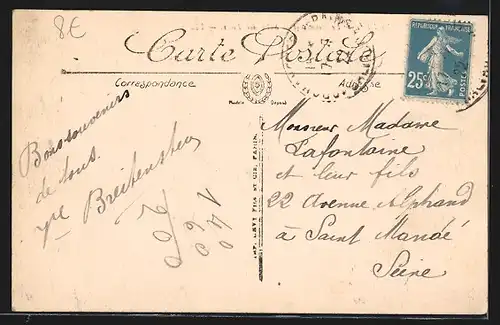 8€
Carte Postale
Correspondance
Adresse
RÉPUBLIQUE FRANÇAISE
25c
POSTES
Bons souvenirs
de tous.
Breitenstein
200
140
60
Monsieur Madame
Lafontaine
et leur fils
22 Avenue Alphand
à Saint Mandé
Seine